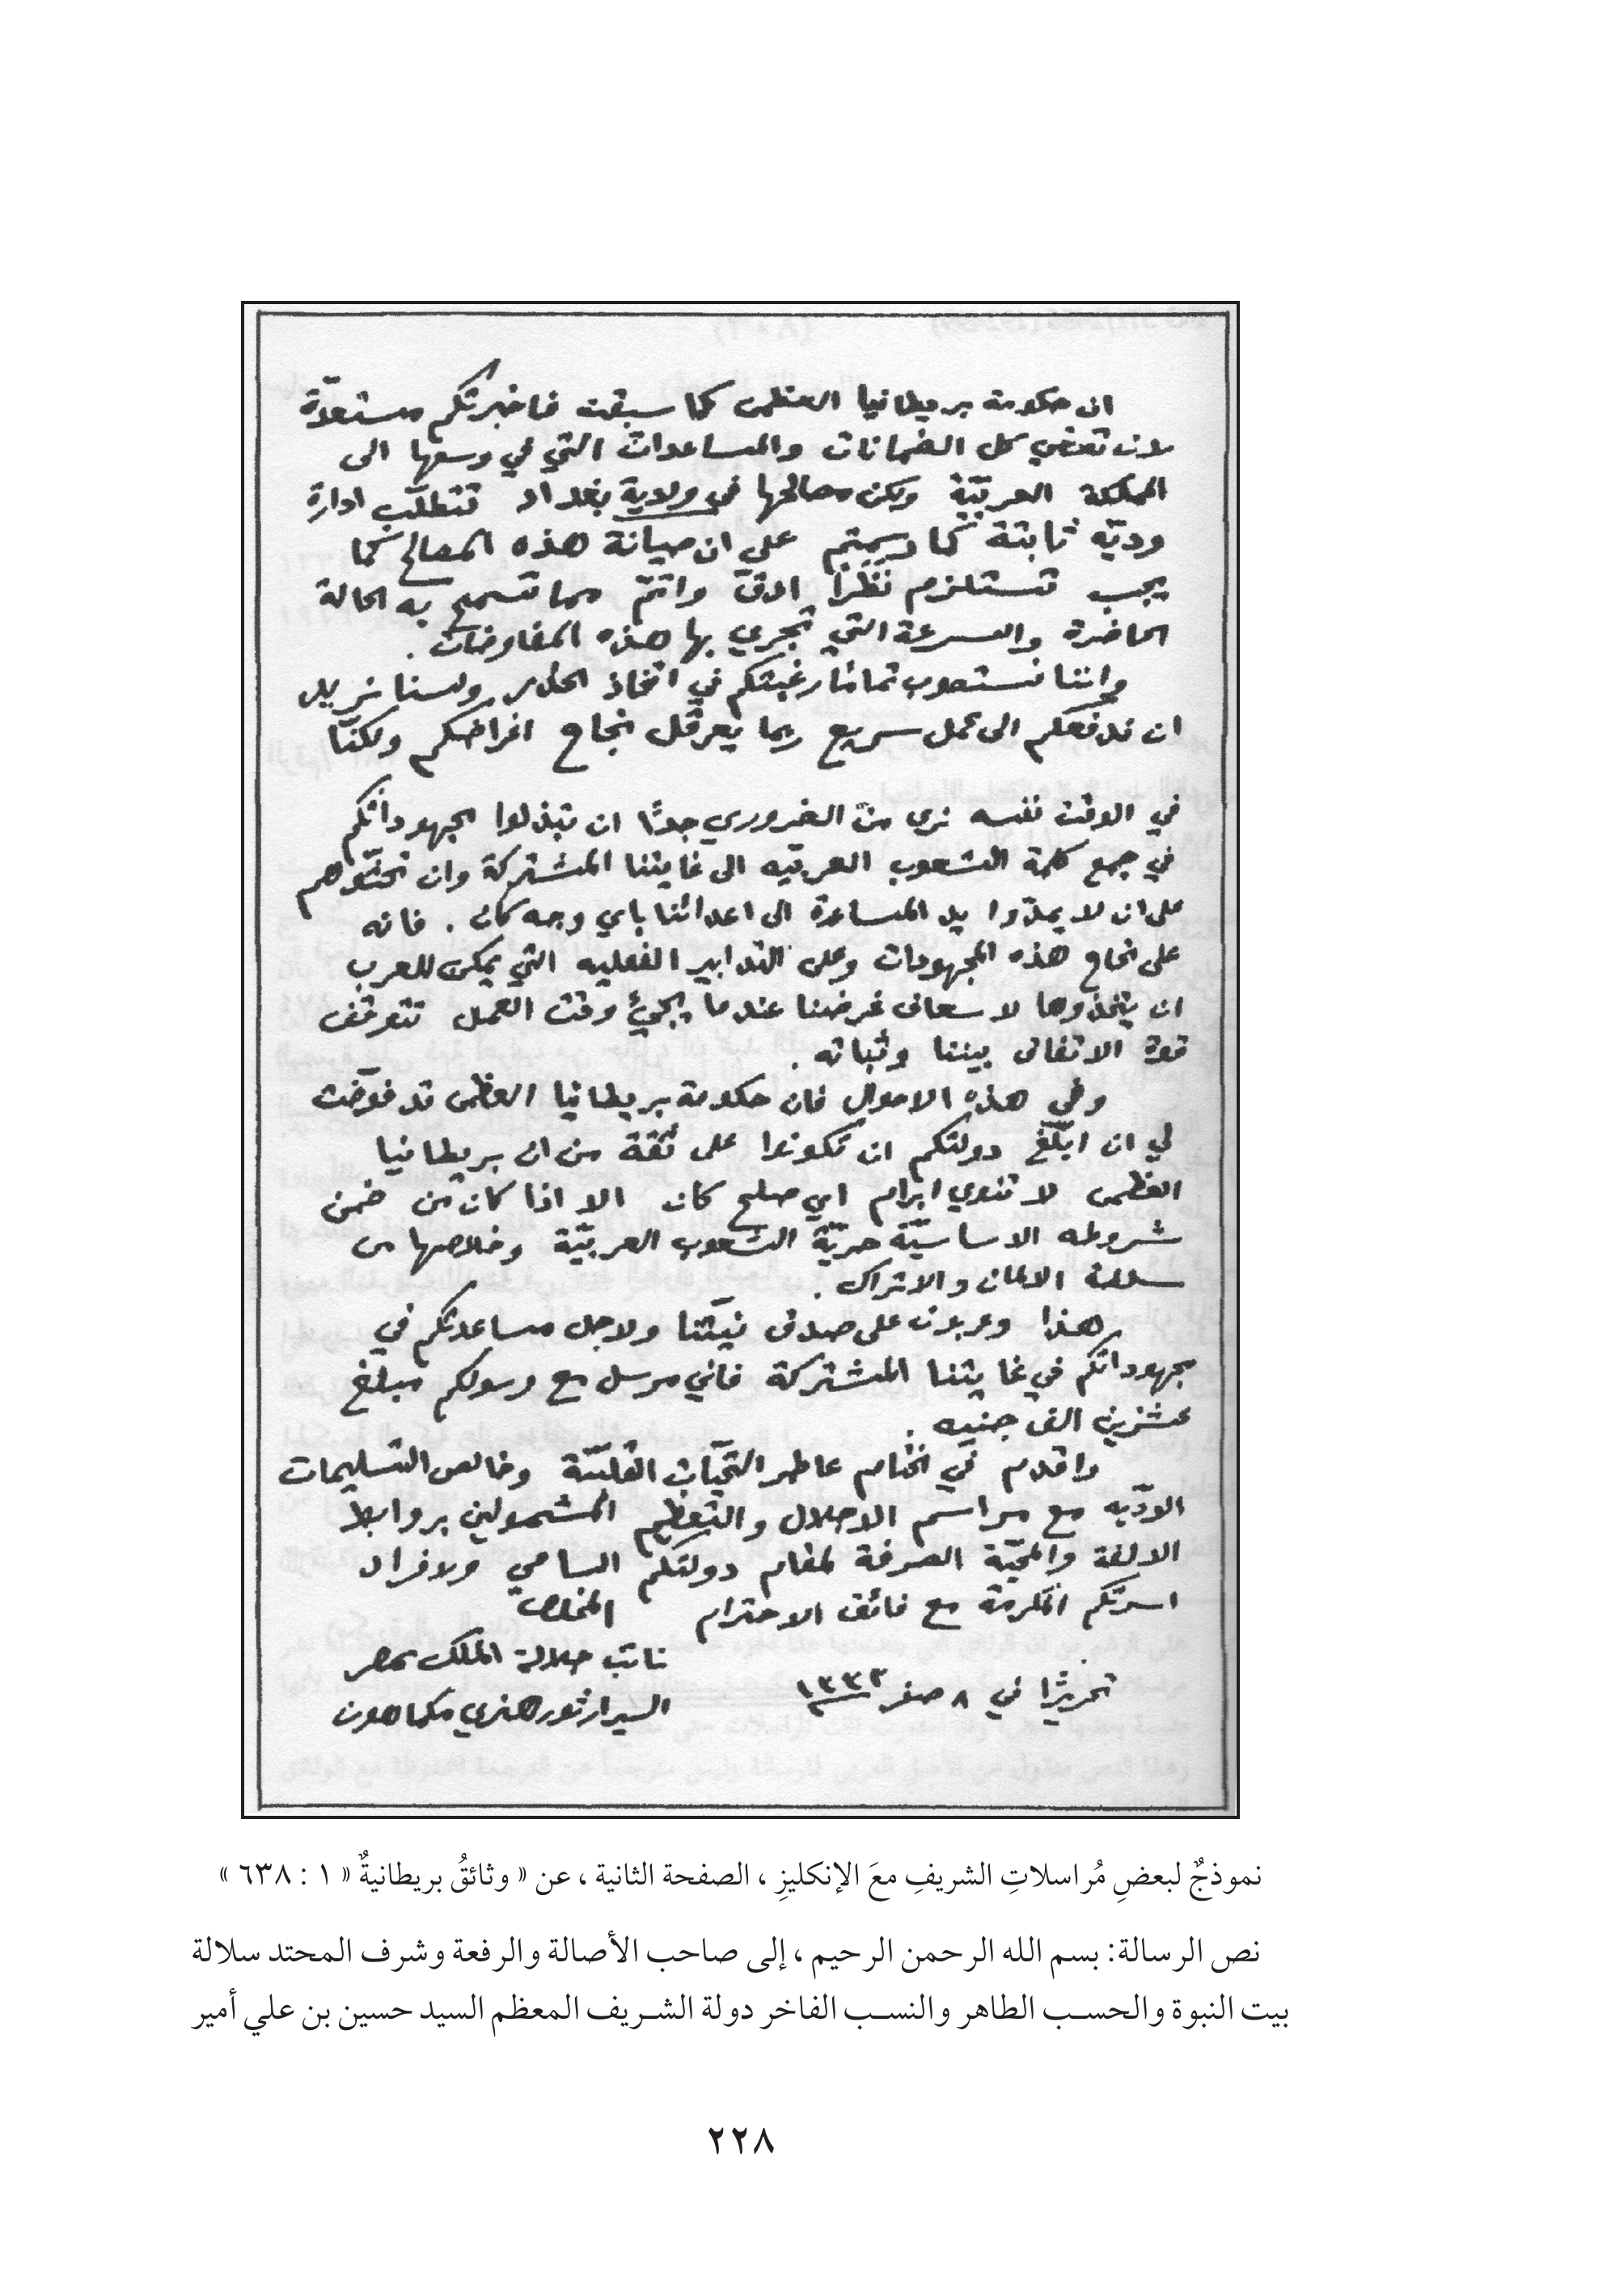 ان حكومة بريطانيا العظمى كما سبقت فاخبرتكم مستعدّة
لان تعطي كل الضمانات والمساعدات التي في وسعها الى
المملكة العربيّة ولكن مصالحها في ولاية بغداد تتطلّب ادارة
وديّه ثابتة كما رسمتم على ان صيانة هذه المصالح كما
يجب تستلزم نظرًا ادقّ واتمّ مما تسمح به الحالة
الحاضرة والسرعة التي تجري بها هذه المفاوضات .
واننا نستصوب تمامًا رغبتكم في اتخاذ الحذر ولسنا نريد
ان ندفعكم الى عمل سريع ربما يعرقل نجاح اغراضكم ولكنّا
في الوقت نفسه نرى من الضروري جدًّا ان تبذلوا مجهوداتكم
في جمع كلمة الشعوب العربيّه الى غايتنا المشتركة وان تحثّوهم
على ان لا يمدّوا يد المساعدة الى اعدائنا باي وجه كان . فانه
على نجاح هذه المجهودات وعلى التدابير الفعليه التي يمكن للعرب
ان يتخذوها لاسعاف غرضنا عندما يجئ وقت العمل تتوقف
قوة الاتفاق بيننا وثباته .
وفي هذه الاحوال فان حكومة بريطانيا العظمى قد فوّضت
لي ان ابلّغ دولتكم ان تكونوا على ثقة من ان بريطانيا
العظمى لا تنوي ابرام اي صلح كان الا اذا كان من ضمن
شروطه الاساسيّة حريّة الشعوب العربيّة وخلاصها من
سلطة الالمان والاتراك .
هذا وعربون على صدق نيّتنا ولاجل مساعدتكم في
مجهوداتكم في غايتنا المشتركة فاني مرسل مع رسولكم مبلغ
عشرين الف جنيه .
واقدم في الختام عاطر التحيّات القلبيّة وخالص التسليمات
الودّيه مع مراسم الاجلال والتعظيم المشمولين بروابط
الالفة والمحبّة الصرفة لمقام دولتكم السامي ولافراد
اسرتكم المكرمة مع فائق الاحترام المخلص
نائب جلالة الملك بمصر
تحريرًا في ٨ صفر ١٣٣٤
السير ارثور هنري مكماهون
نموذجٌ لبعضِ مُراسلاتِ الشريفِ معَ الإنكليزِ ، الصفحة الثانية ، عن « وثائقُ بريطانيةٌ « ١ : ٦٣٨ »
نص الرسالة: بسم الله الرحمن الرحيم ، إلى صاحب الأصالة والرفعة وشرف المحتد سلالة
بيت النبوة والحسب الطاهر والنسب الفاخر دولة الشريف المعظم السيد حسين بن علي أمير
٢٢٨